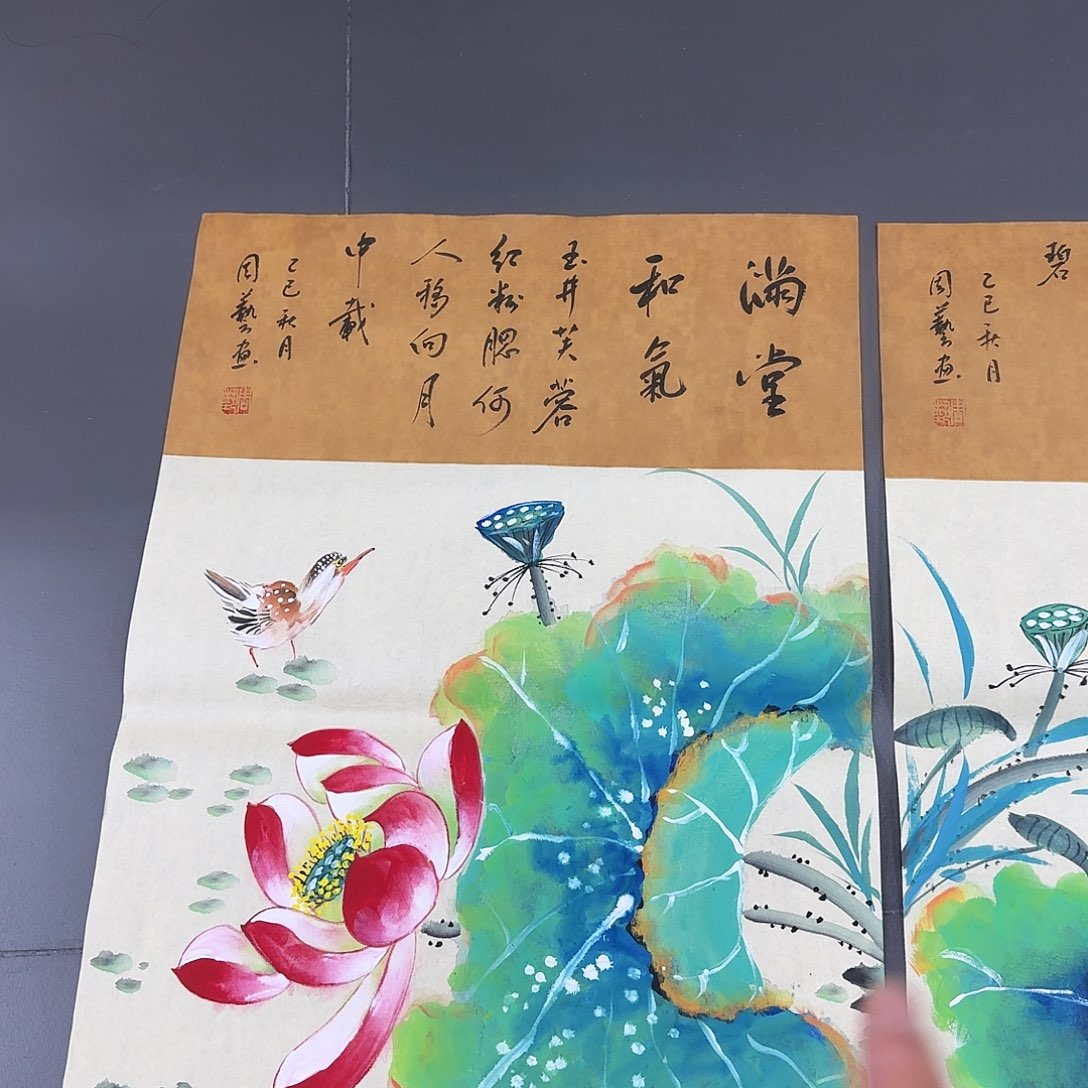 滿堂
和氣
玉井芙蓉
紅粉腮何
人移向月
中栽
乙巳秋月
周藝畫
碧
乙巳秋月
周藝畫